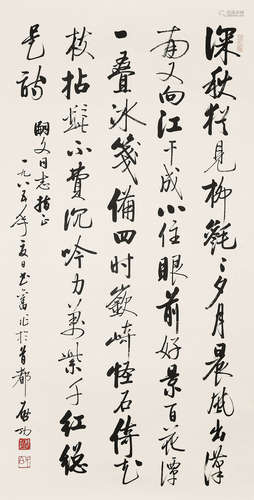 深秋犹见柳毵毵夕月晨风出汉
南又向江干成小住眼前好景百花潭
一叠冰笺备四时嵚崎怪石倚花
枝拈髭不费沉吟力万紫千红总
是诗
嗣文同志指正
一九八五年夏日书旧作于首都 启功